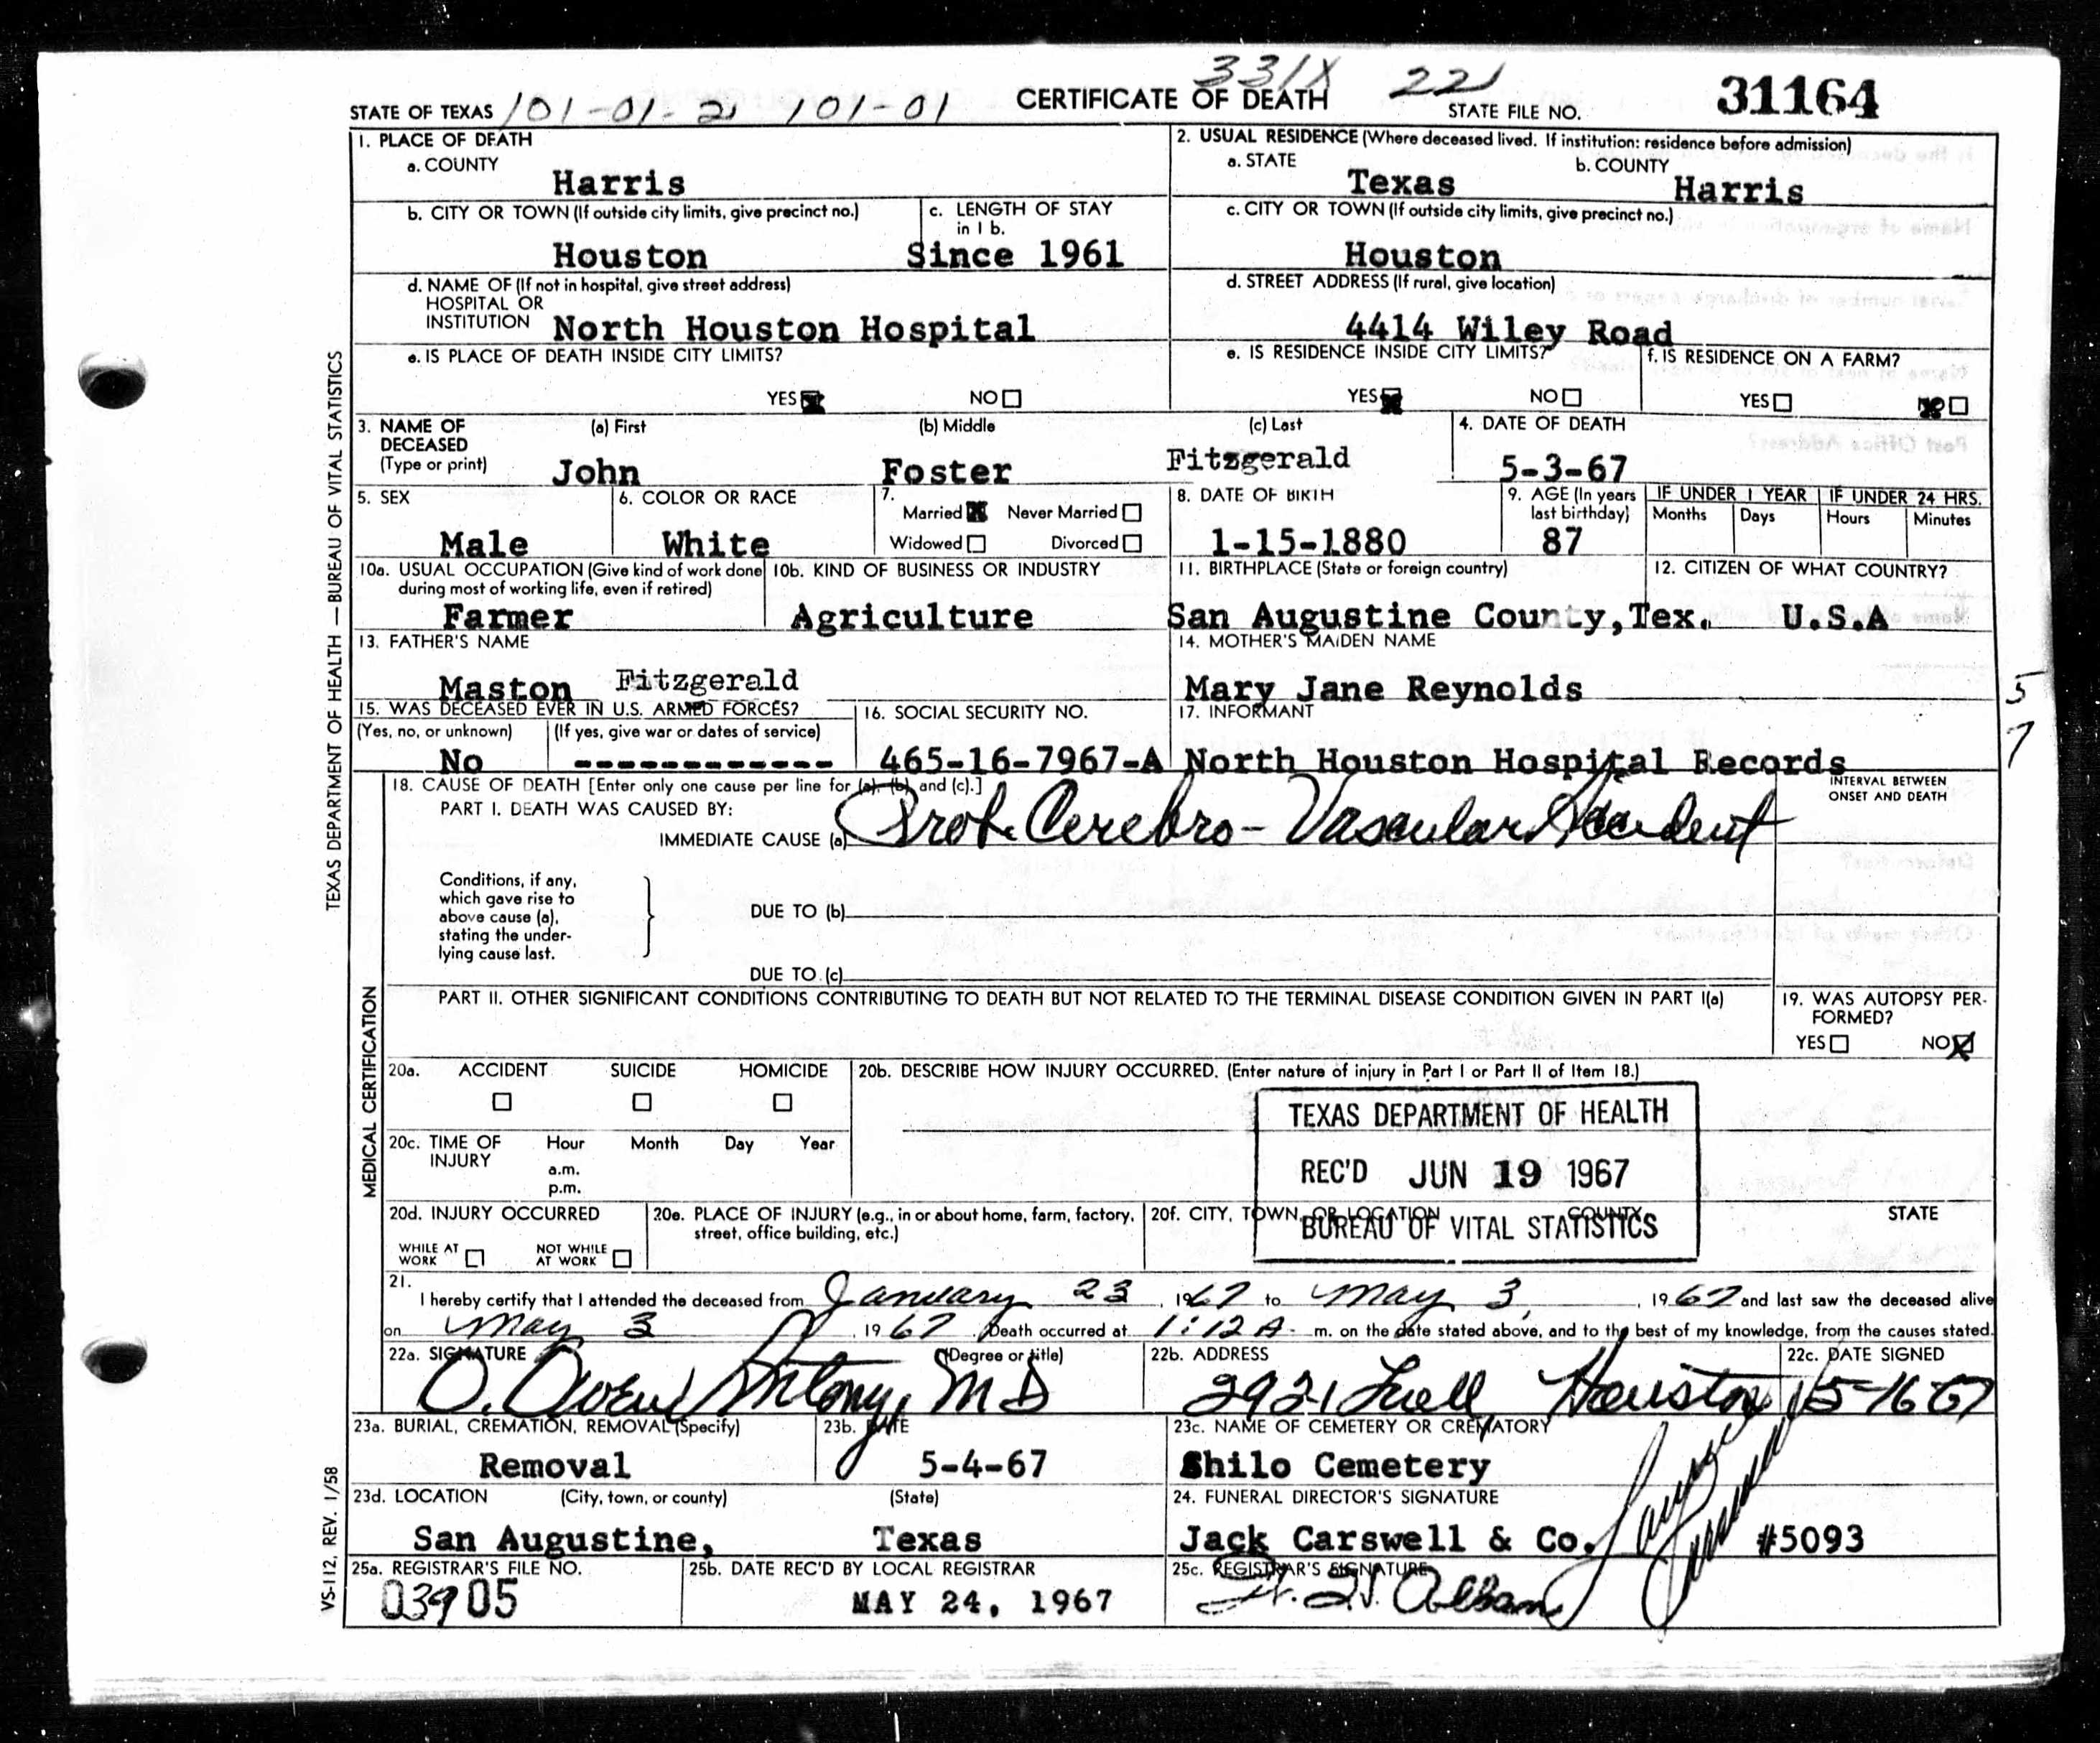 331X 221
STATE OF TEXAS 101-01-21 101-01 CERTIFICATE OF DEATH STATE FILE NO. 31164
1. PLACE OF DEATH
a. COUNTY
Harris
2. USUAL RESIDENCE (Where deceased lived. If institution: residence before admission)
a. STATE b. COUNTY
Texas Harris
b. CITY OR TOWN (If outside city limits, give precinct no.)
Houston
c. LENGTH OF STAY
in 1 b.
Since 1961
c. CITY OR TOWN (If outside city limits, give precinct no.)
Houston
d. NAME OF (If not in hospital, give street address)
HOSPITAL OR
INSTITUTION North Houston Hospital
d. STREET ADDRESS (If rural, give location)
4414 Wiley Road
e. IS PLACE OF DEATH INSIDE CITY LIMITS?
YES NO
e. IS RESIDENCE INSIDE CITY LIMITS?
YES NO
f. IS RESIDENCE ON A FARM?
YES NO
3. NAME OF
DECEASED
(Type or print)
(a) First (b) Middle (c) Last
John Foster Fitzgerald
4. DATE OF DEATH
5-3-67
5. SEX
Male
6. COLOR OR RACE
White
7.
Married Never Married
Widowed Divorced
8. DATE OF BIRTH
1-15-1880
9. AGE (In years
last birthday)
87
IF UNDER 1 YEAR IF UNDER 24 HRS.
Months Days Hours Minutes
10a. USUAL OCCUPATION (Give kind of work done
during most of working life, even if retired)
Farmer
10b. KIND OF BUSINESS OR INDUSTRY
Agriculture
11. BIRTHPLACE (State or foreign country)
San Augustine County, Tex.
12. CITIZEN OF WHAT COUNTRY?
U.S.A
13. FATHER'S NAME
Maston Fitzgerald
14. MOTHER'S MAIDEN NAME
Mary Jane Reynolds
15. WAS DECEASED EVER IN U.S. ARMED FORCES?
(Yes, no, or unknown) (If yes, give war or dates of service)
No ------------
16. SOCIAL SECURITY NO.
465-16-7967-A
17. INFORMANT
North Houston Hospital Records
5
7
18. CAUSE OF DEATH [Enter only one cause per line for (a), (b) and (c).]
PART I. DEATH WAS CAUSED BY:
IMMEDIATE CAUSE (a) Prob. Cerebro-Vascular Accident
INTERVAL BETWEEN
ONSET AND DEATH
Conditions, if any,
which gave rise to
above cause (a),
stating the under-
lying cause last.
DUE TO (b)
DUE TO (c)
PART II. OTHER SIGNIFICANT CONDITIONS CONTRIBUTING TO DEATH BUT NOT RELATED TO THE TERMINAL DISEASE CONDITION GIVEN IN PART I(a)
19. WAS AUTOPSY PER-
FORMED?
YES NO
20a. ACCIDENT SUICIDE HOMICIDE
20b. DESCRIBE HOW INJURY OCCURRED. (Enter nature of injury in Part I or Part II of Item 18.)
20c. TIME OF
INJURY
Hour Month Day Year
a.m.
p.m.
TEXAS DEPARTMENT OF HEALTH
REC'D JUN 19 1967
BUREAU OF VITAL STATISTICS
20d. INJURY OCCURRED
WHILE AT
WORK
NOT WHILE
AT WORK
20e. PLACE OF INJURY (e.g., in or about home, farm, factory,
street, office building, etc.)
20f. CITY, TOWN, OR LOCATION COUNTY STATE
21.
I hereby certify that I attended the deceased from January 23, 1967 to May 3, 1967 and last saw the deceased alive
on May 3, 1967. Death occurred at 1:12 A. m. on the date stated above, and to the best of my knowledge, from the causes stated.
22a. SIGNATURE (Degree or title)
O. Owen Antony, MD
22b. ADDRESS
Houston
22c. DATE SIGNED
5-16-67
23a. BURIAL, CREMATION, REMOVAL (Specify)
Removal
23b. DATE
5-4-67
23c. NAME OF CEMETERY OR CREMATORY
Shilo Cemetery
23d. LOCATION (City, town, or county) (State)
San Augustine, Texas
24. FUNERAL DIRECTOR'S SIGNATURE
Jack Carswell & Co. #5093
25a. REGISTRAR'S FILE NO.
03905
25b. DATE REC'D BY LOCAL REGISTRAR
MAY 24, 1967
25c. REGISTRAR'S SIGNATURE
TEXAS DEPARTMENT OF HEALTH — BUREAU OF VITAL STATISTICS
MEDICAL CERTIFICATION
VS-112, REV. 1/58